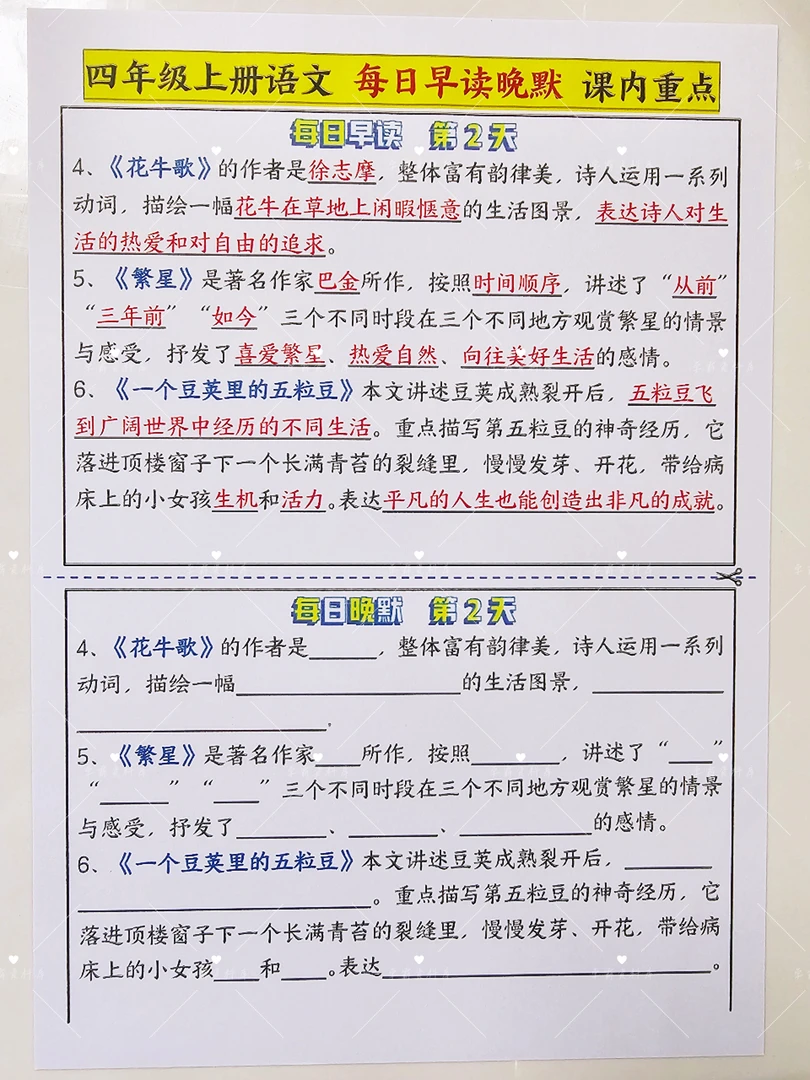 四年级上册语文 每日早读晚默 课内重点
每日早读 第2天
4、《花牛歌》的作者是徐志摩，整体富有韵律美，诗人运用一系列
动词，描绘一幅花牛在草地上闲暇惬意的生活图景，表达诗人对生
活的热爱和对自由的追求。
5、《繁星》是著名作家巴金所作，按照时间顺序，讲述了“从前”
“三年前”“如今”三个不同时段在三个不同地方观赏繁星的情景
与感受，抒发了喜爱繁星、热爱自然、向往美好生活的感情。
6、《一个豆荚里的五粒豆》本文讲述豆荚成熟裂开后，五粒豆飞
到广阔世界中经历的不同生活。重点描写第五粒豆的神奇经历，它
落进顶楼窗子下一个长满青苔的裂缝里，慢慢发芽、开花，带给病
床上的小女孩生机和活力。表达平凡的人生也能创造出非凡的成就。
每日晚默 第2天
4、《花牛歌》的作者是______，整体富有韵律美，诗人运用一系列
动词，描绘一幅____________________的生活图景，____________
______________________。
5、《繁星》是著名作家____所作，按照________，讲述了“____”
“______”“____”三个不同时段在三个不同地方观赏繁星的情景
与感受，抒发了________、________、____________的感情。
6、《一个豆荚里的五粒豆》本文讲述豆荚成熟裂开后，________
__________________________。重点描写第五粒豆的神奇经历，它
落进顶楼窗子下一个长满青苔的裂缝里，慢慢发芽、开花，带给病
床上的小女孩____和____。表达______________________________。